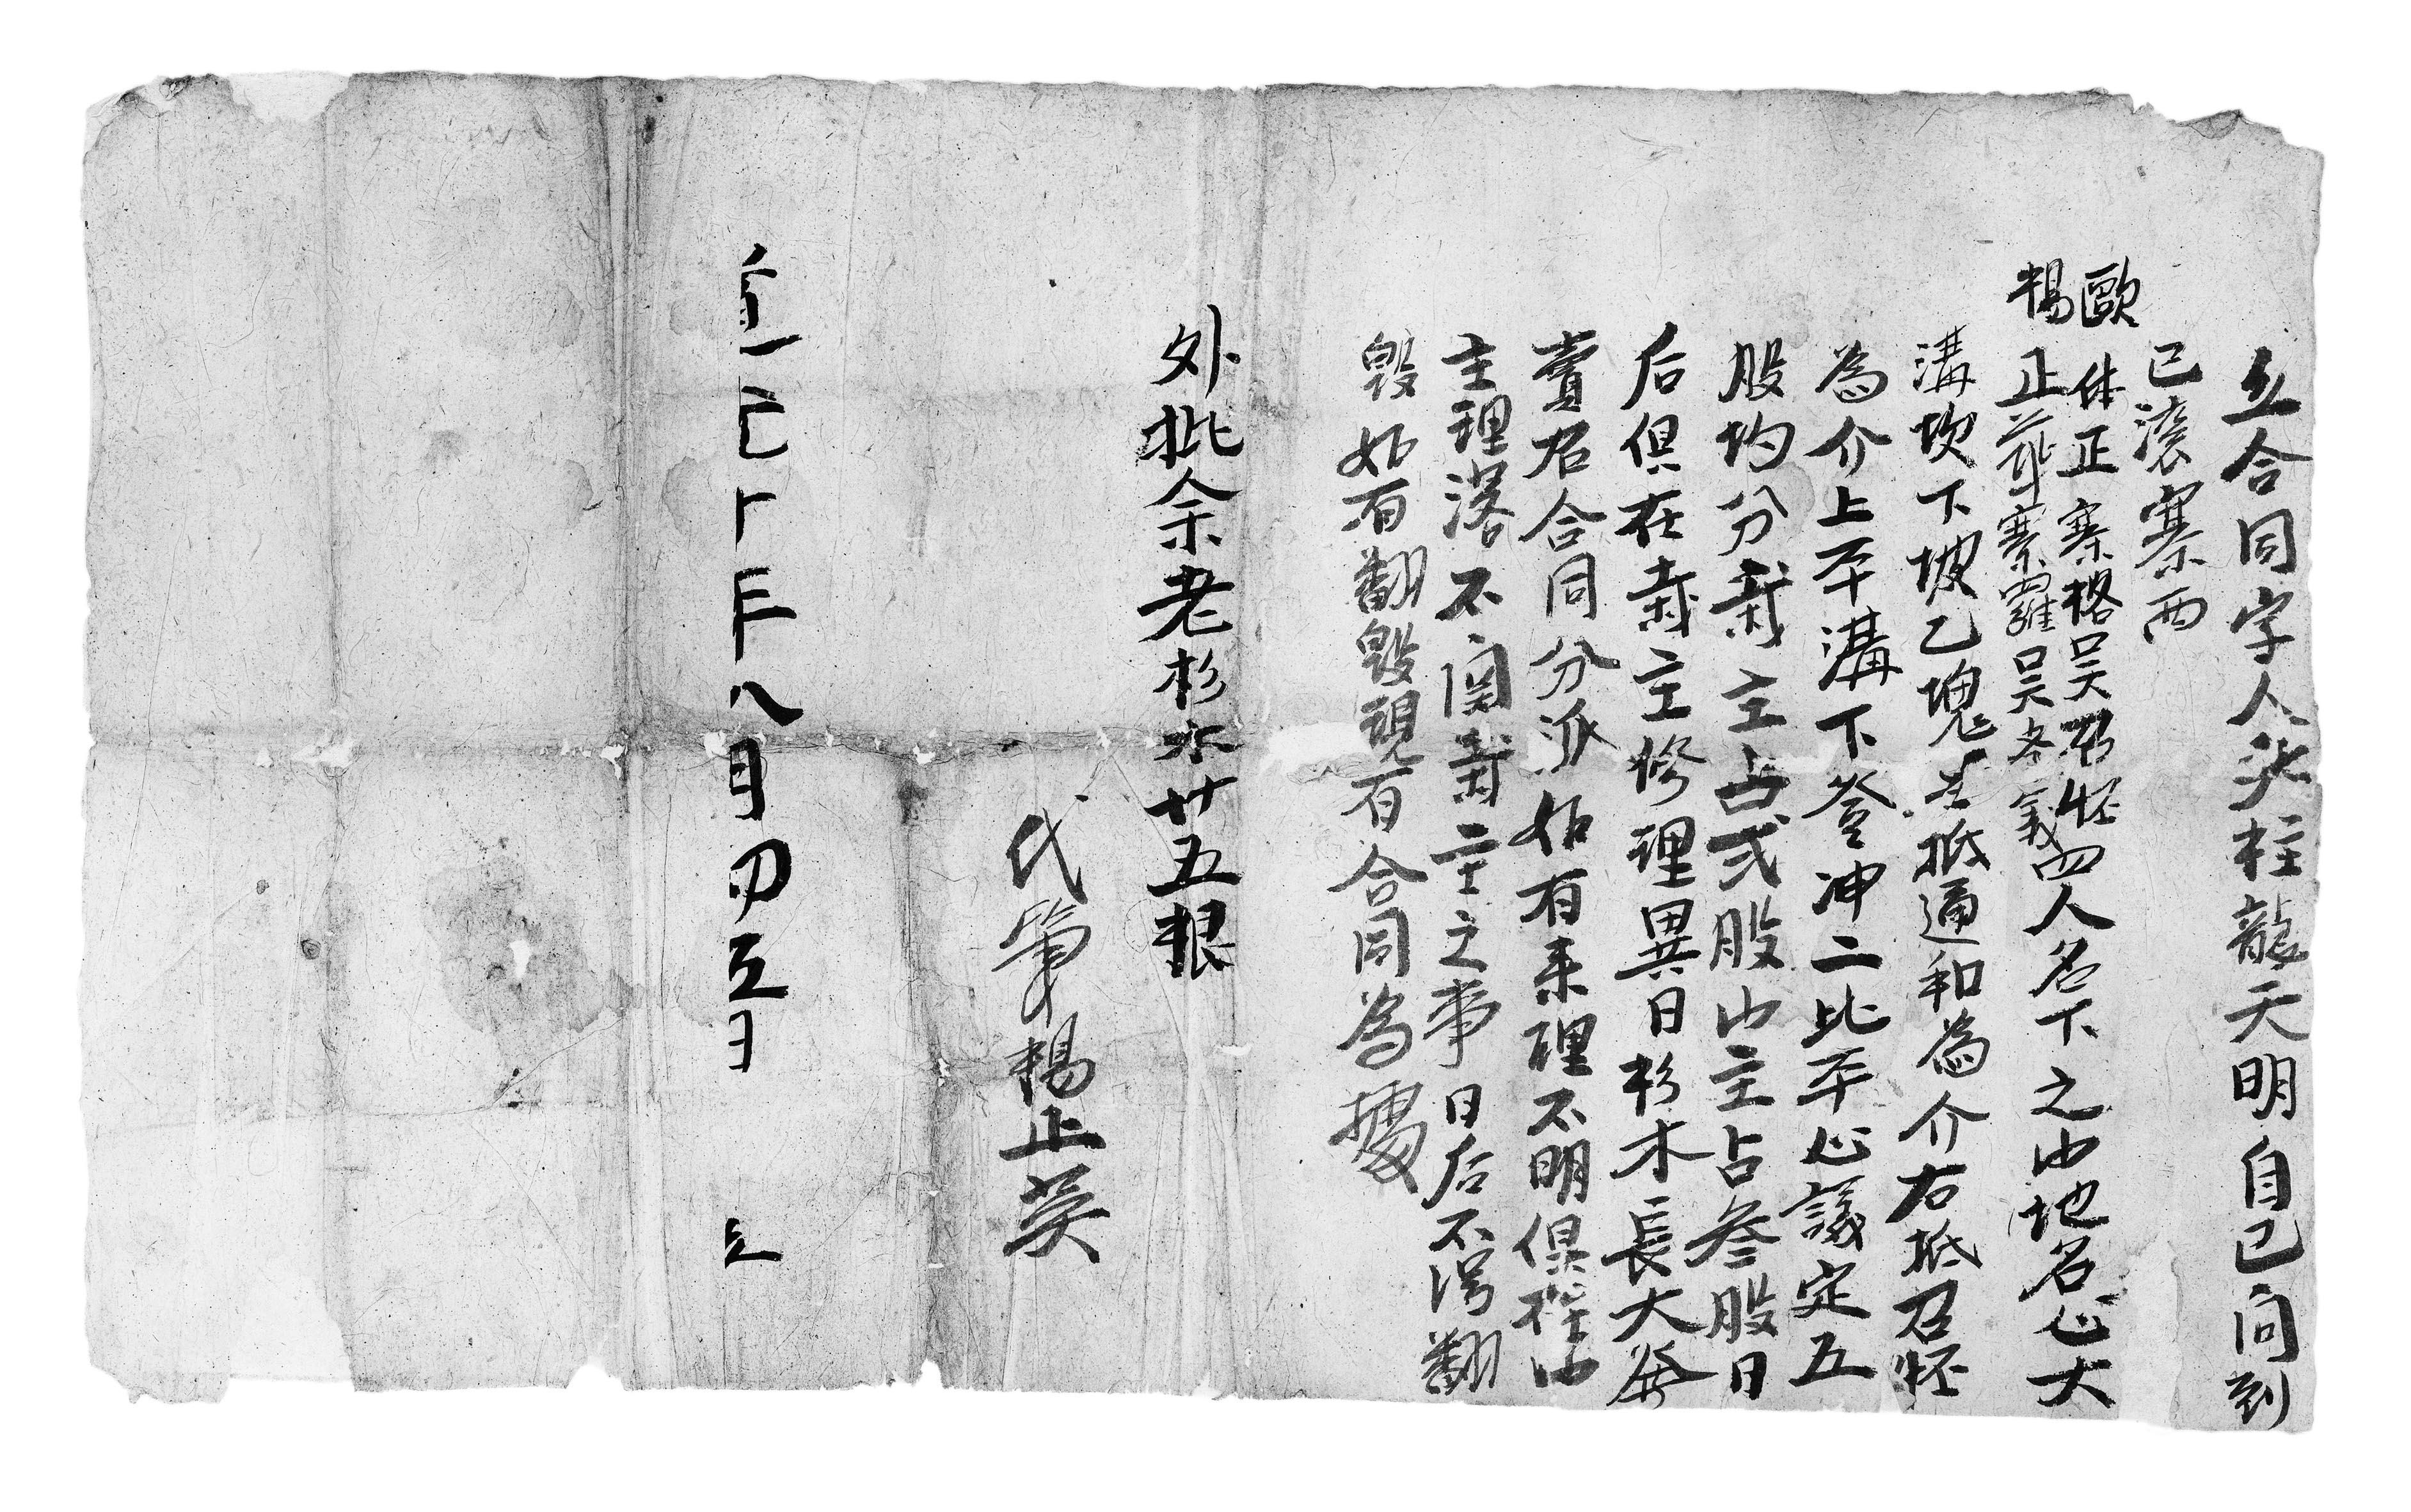 立合同字人姜柱龍天明自己问到
已滚寨两
歐体正寨格吴召怌
楊正華寨羅吴冬义四人名下之山地名心大
溝坎下坡乙塊左抵通和為介右抵召怌
為介上至溝下登冲二比平心議定五
股均分栽主占弍股山主占叁股日
后俱在栽主修理異日杉木長大發
賣召合同分派如有来理不明俱在山
主理落不関栽主之事日后不淂翻
毁如有翻毁現有合同為據
外批余老杉木廿五根
代筆楊正英
年八月初五日 立